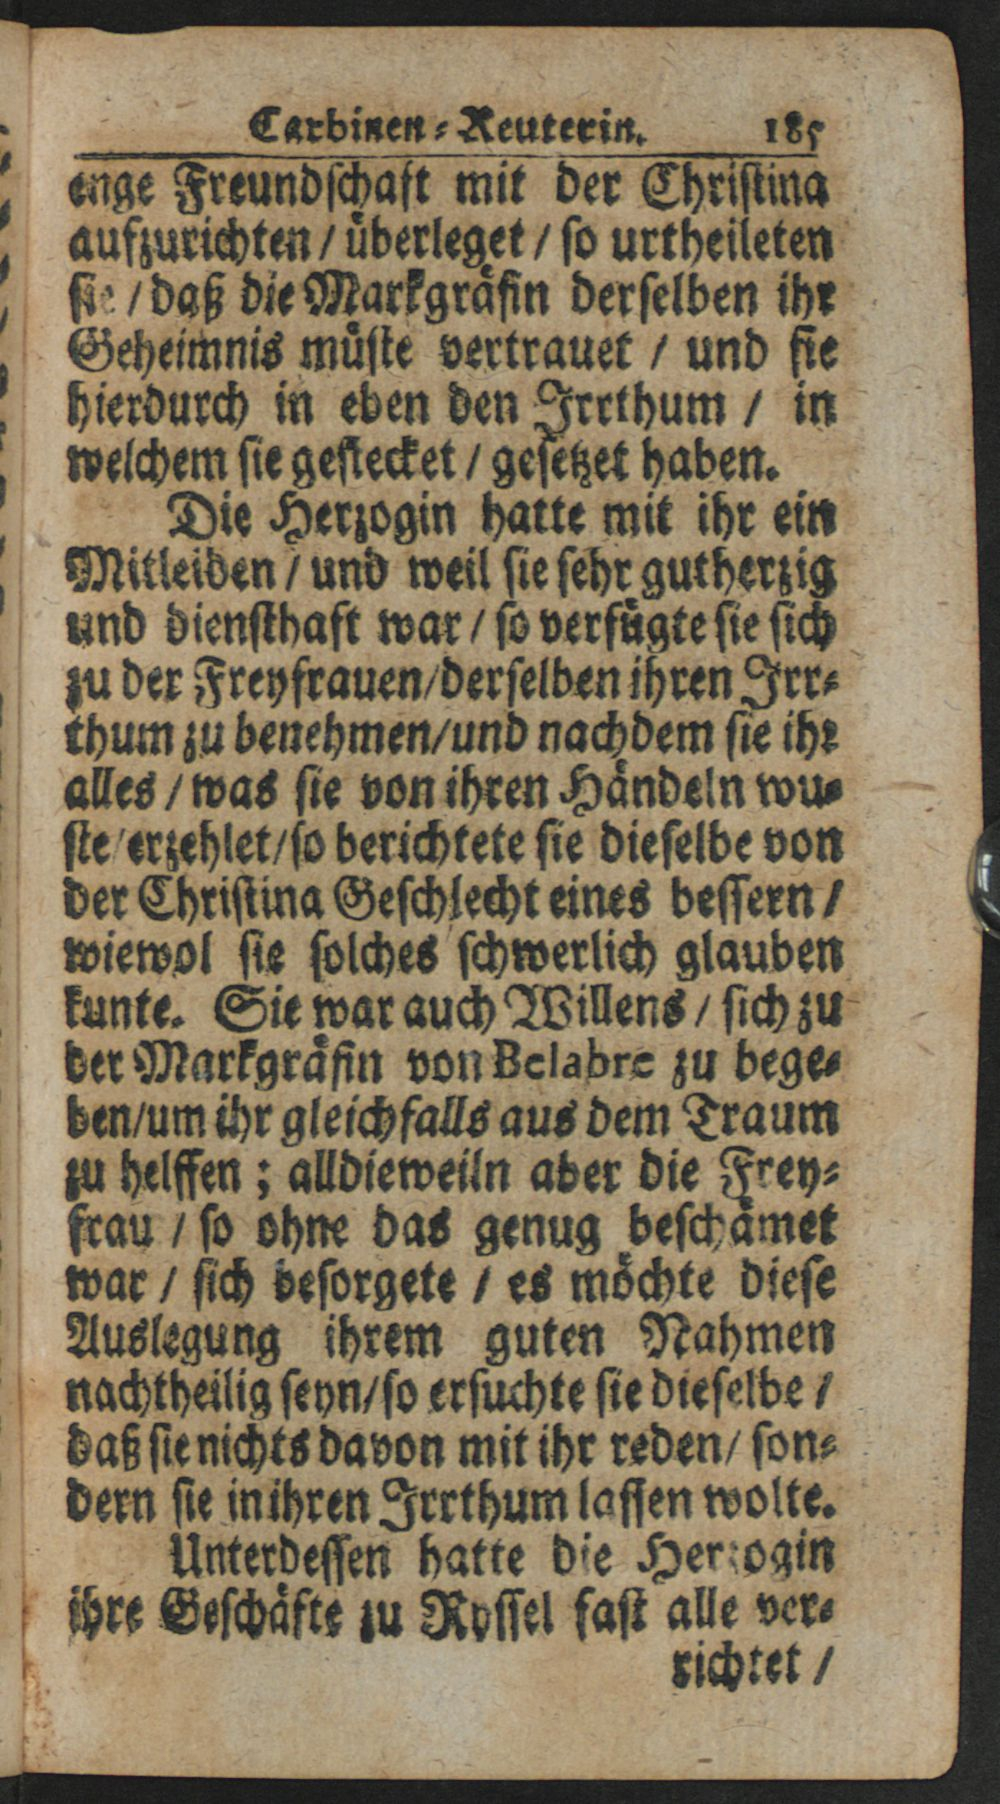 Carbinen-Reuterin. 185
enge Freundschaft mit der Christina
aufzurichten / uͤberleget / so urtheileten
sie / daß die Markgraͤfin derselben ihr
Geheimnis muͤste vertrauet / und sie
hierdurch in eben den Irrthum / in
welchem sie gestecket / gesetzet haben.
Die Herzogin hatte mit ihr ein
Mitleiden / und weil sie sehr gutherzig
und diensthaft war / so verfuͤgte sie sich
zu der Freyfrauen/derselben ihren Irr-
thum zu benehmen/und nachdem sie ihr
alles / was sie von ihren Haͤndeln wu-
ste/erzehlet/so berichtete sie dieselbe von
der Christina Geschlecht eines bessern /
wiewol sie solches schwerlich glauben
kunte. Sie war auch Willens / sich zu
der Markgraͤfin von Belabre zu bege-
ben/um ihr gleichfalls aus dem Traum
zu helffen ; alldieweiln aber die Frey-
frau / so ohne das genug beschaͤmet
war / sich besorgete / es moͤchte diese
Auslegung ihrem guten Nahmen
nachtheilig seyn/so ersuchte sie dieselbe /
daß sie nichts davon mit ihr reden/ son-
dern sie in ihren Irrthum lassen wolte.
Unterdessen hatte die Herzogin
ihre Geschaͤfte zu Ryssel fast alle ver-
richtet /